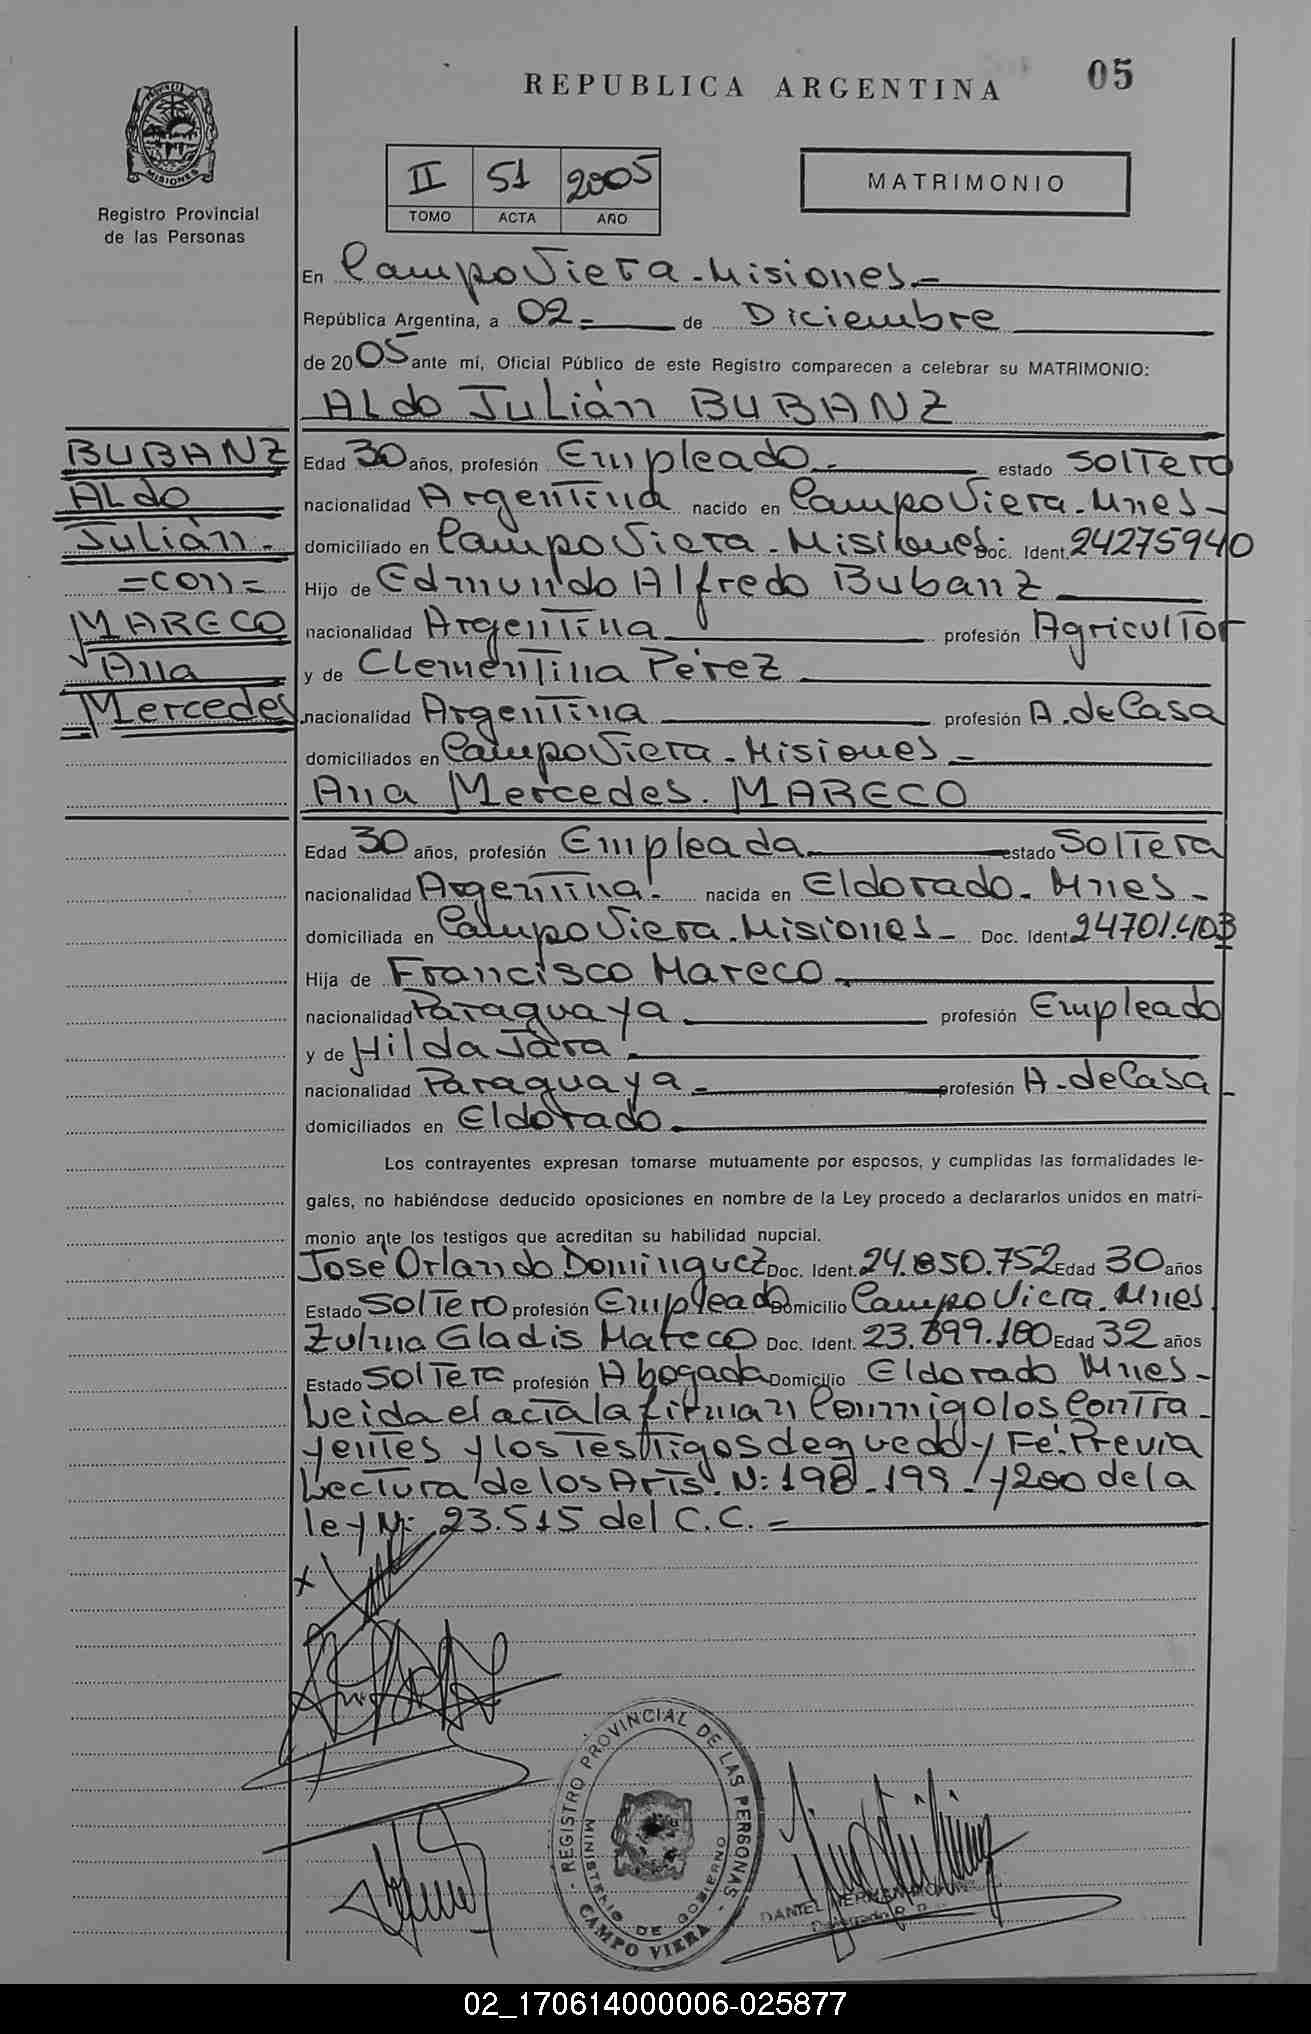 REPUBLICA ARGENTINA
05
MISIONES
Registro Provincial
de las Personas
II 51 2005
TOMO ACTA AÑO
MATRIMONIO
En Campo Viera - Misiones -
República Argentina, a 02 - de Diciembre
de 2005 ante mí, Oficial Público de este Registro comparecen a celebrar su MATRIMONIO:
Aldo Julián BUBANZ
BUBANZ
Aldo
Julián -
= con =
MARECO
Ana
Mercedes
Edad 30 años, profesión Empleado - estado Soltero
nacionalidad Argentina nacido en Campo Viera - Mnes -
domiciliado en Campo Viera - Misiones Doc. Ident. 24275940
Hijo de Edmundo Alfredo Bubanz
nacionalidad Argentina profesión Agricultor
y de Clementina Pérez
nacionalidad Argentina profesión A. de Casa
domiciliados en Campo Viera - Misiones -
Ana Mercedes. MARECO
Edad 30 años, profesión Empleada estado Soltera
nacionalidad Argentina - nacida en Eldorado - Mnes -
domiciliada en Campo Viera - Misiones - Doc. Ident 24701.403
Hija de Francisco Mareco
nacionalidad Paraguaya profesión Empleado
y de Hilda Jara
nacionalidad Paraguaya - profesión A - de Casa -
domiciliados en Eldorado
Los contrayentes expresan tomarse mutuamente por esposos, y cumplidas las formalidades le-
gales, no habiéndose deducido oposiciones en nombre de la Ley procedo a declararlos unidos en matri-
monio ante los testigos que acreditan su habilidad nupcial.
José Orlando Dominguez Doc. Ident. 24.850.752 Edad 30 años
Estado Soltero profesión Empleado Domicilio Campo Viera - Mnes
Zulma Gladis Mareco Doc. Ident. 23.899.180 Edad 32 años
Estado Soltera profesión Abogada Domicilio Eldorado Mnes -
Leida el acta la firman Conmigo los Contra-
yentes y los Testigos de que doy Fé. Previa
Lectura de los Arts. N: 198 - 199 - y 200 de la
ley N: 23.515 del C.C. =
x
REGISTRO PROVINCIAL DE LAS PERSONAS
MINISTERIO DE GOBIERNO
CAMPO VIERA
DANIEL
02_170614000006-025877